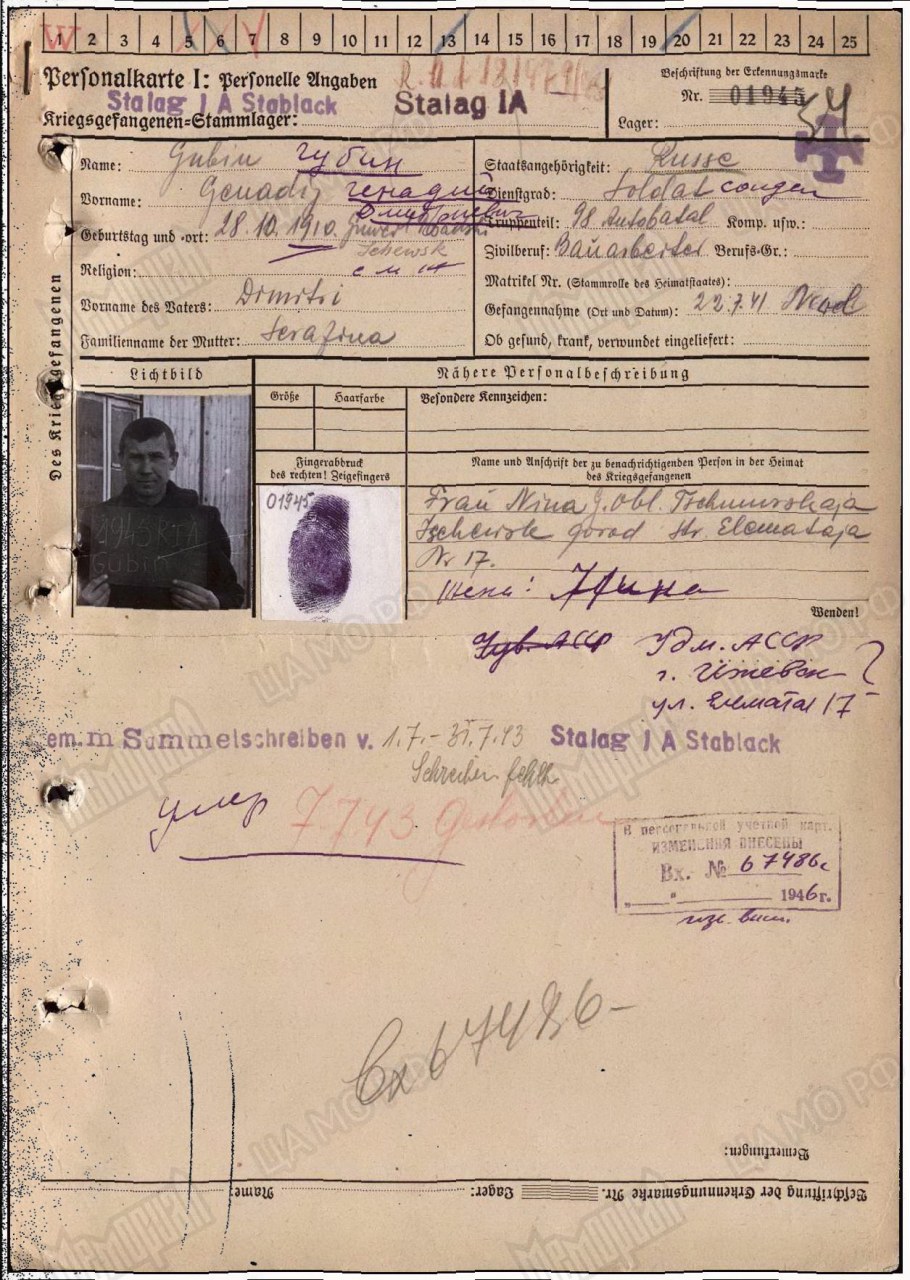 W
1 2 3 4 5 6 7 8 9 10 11 12 13 14 15 16 17 18 19 20 21 22 23 24 25
Personalkarte I: Personelle Angaben
Stalag I A Stablack
Stalag IA
Kriegsgefangenen-Stammlager:
Beschriftung der Erkennungsmarke
Nr. 01945
Lager:
Des Kriegsgefangenen
Name: Gubin Губин
Vorname: Genadij Генадий
Дмитриевич
Geburtstag und -ort: 28.10.1910.
Ischewsk
Religion:
Vorname des Vaters: Dimitri
Familienname der Mutter: Serafina
Staatsangehörigkeit: Russe
Dienstgrad: Soldat солдат
Truppenteil: 98 Autobatal Komp. usw.:
Zivilberuf: Bauarbeiter Berufs-Gr.:
Matrikel Nr. (Stammrolle des Heimatstaates):
Gefangennahme (Ort und Datum): 22.7.41
Ob gesund, krank, verwundet eingeliefert:
Lichtbild
Nähere Personalbeschreibung
Größe
Haarfarbe
Besondere Kennzeichen:
Fingerabdruck
des rechten! Zeigefingers
01945
Name und Anschrift der zu benachrichtigenden Person in der Heimat
des Kriegsgefangenen
Frau Nina G. Obl.
Ischewsk gorod Str. Elemataja
Nr 17.
Жена: Нина
Wenden!
Gubin
Удм. АССР
г. Ижевск
ул. Елематая 17
em. m Sammelschreiben v. 1.7.-31.7.43 Stalag I A Stablack
Schreiben fehlt
умер 7.7.43 Gestorben
В персональной учетной карт.
ИЗМЕНЕНИЯ ВНЕСЕНЫ
Вх. № 67486с
„ “ 1946г.
Вх 67486-
Bemerkungen:
Beschriftung der Erkennungsmarke Nr. Lager: Name:
МЕМОРИАЛ
ЦАМО РФ